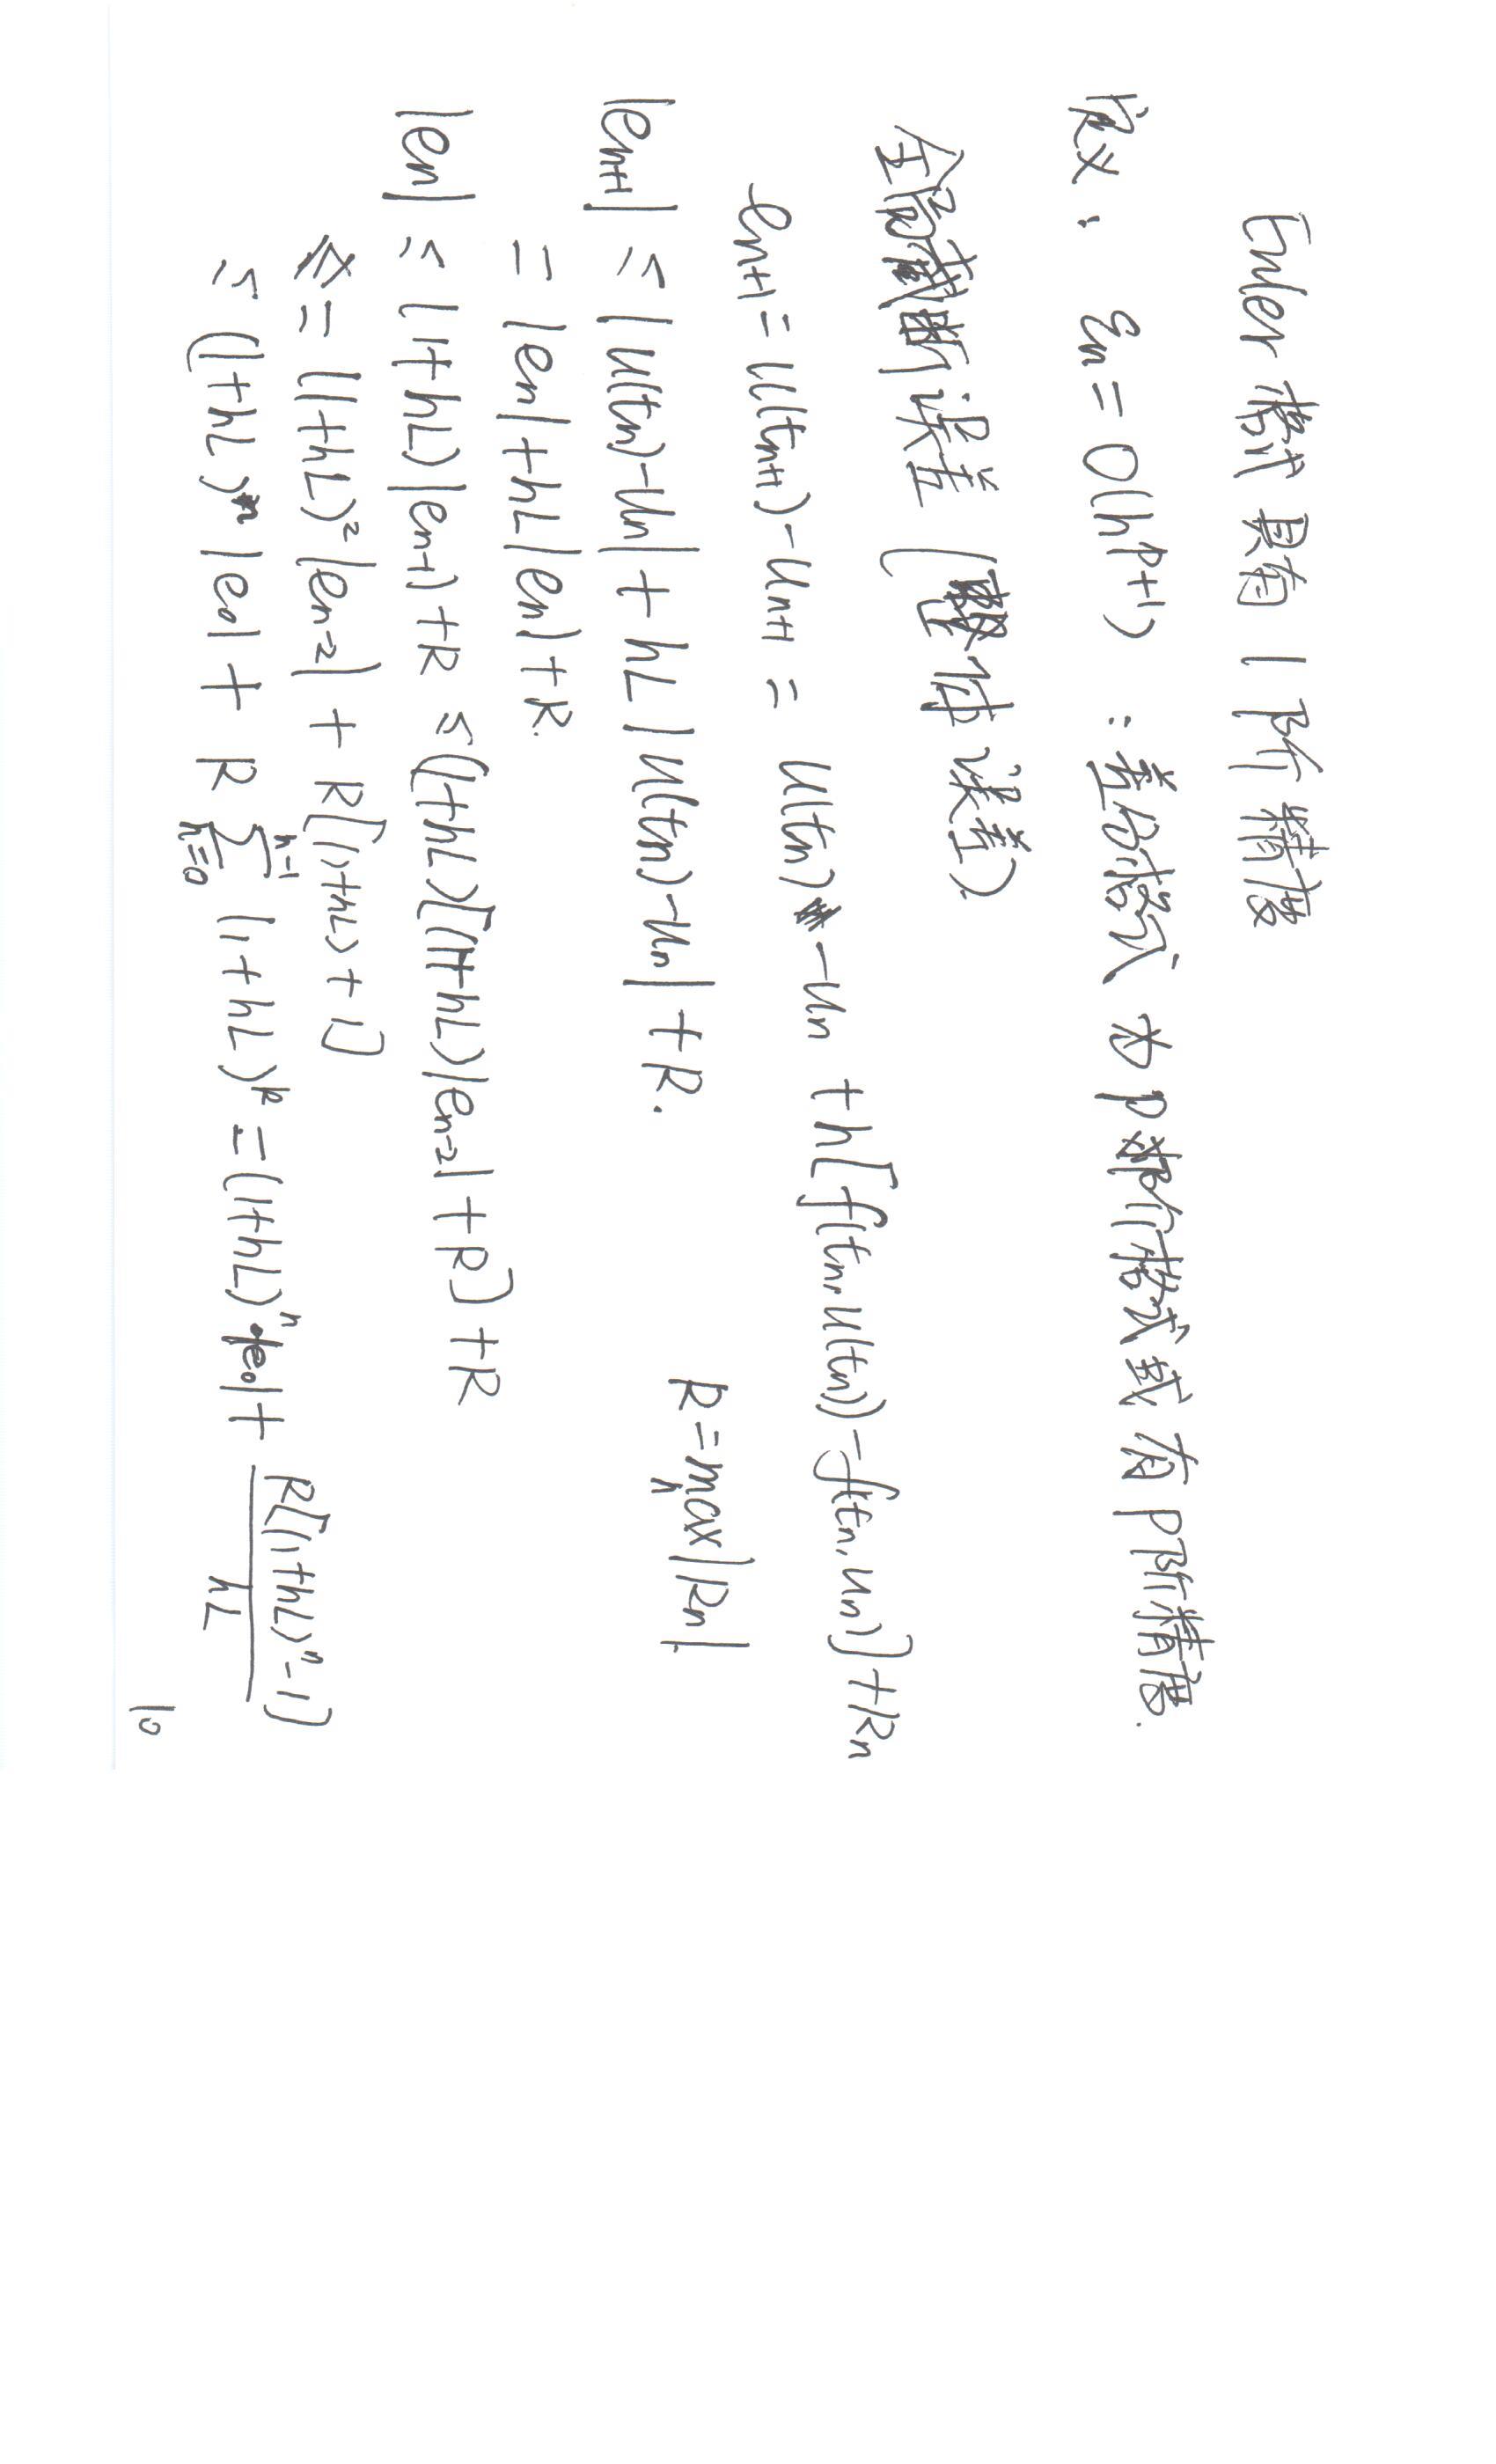 Euler 格式 具有 1 阶 精度
定义: εn = O(h^{p+1}) : 差分格式 为 p 阶格式或 有 p阶精度.
全局截断误差 (整体误差)
e_{n+1} = u(t_{n+1}) - u_{n+1} = u(t_n) - u_n + h[f(t_n, u(t_n)) - f(t_n, u_n)] + R_n
|e_{n+1}| ≤ |u(t_n) - u_n| + hL |u(t_n) - u_n| + R. R = max_n |R_n|.
= |e_n| + hL|e_n| + R.
|e_n| ≤ (1+hL)|e_{n-1}| + R ≤ (1+hL)[(1+hL)|e_{n-2}| + R] + R
= (1+hL)^2 |e_{n-2}| + R[(1+hL) + 1]
≤ (1+hL)^n |e_0| + R \sum_{n=0}^{n-1} (1+hL)^k = (1+hL)^n |e_0| + \frac{R[(1+hL)^n - 1]}{hL}
10